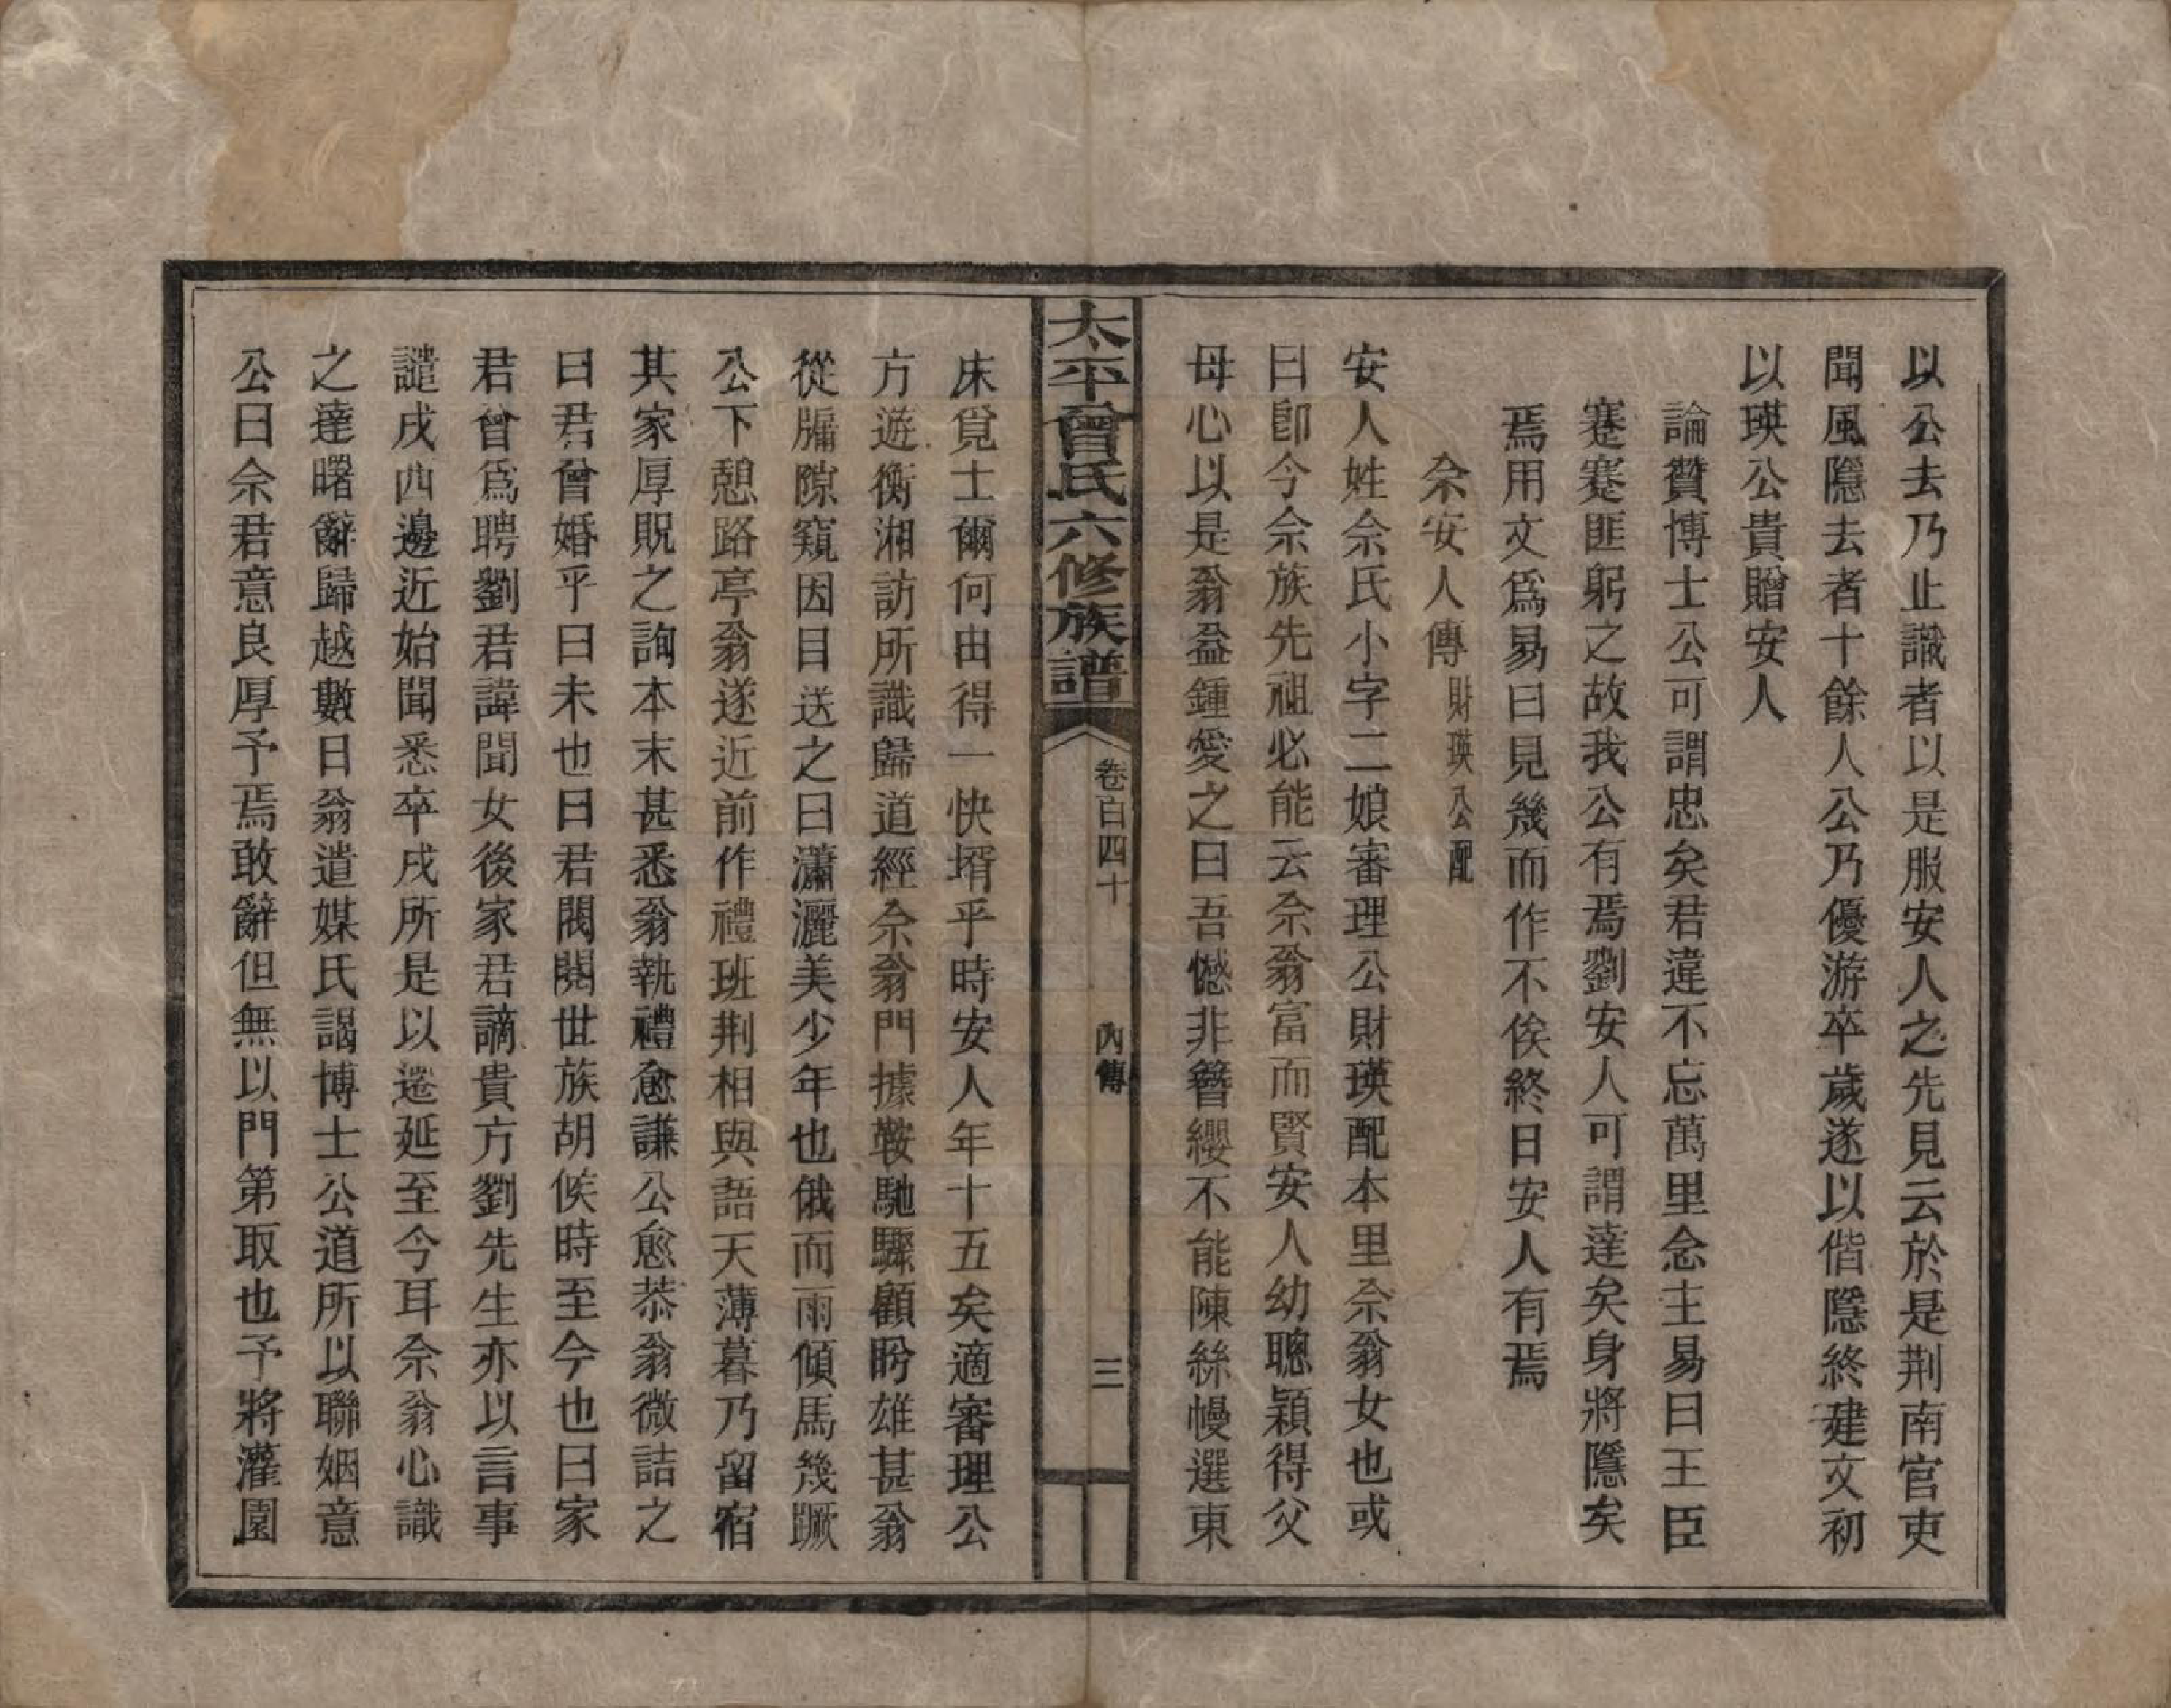 以公去乃止識者以是服安人之先見云於是荆南官吏
聞風隱去者十餘人公乃優游卒歲遂以偕隱終建文初
以瑛公貴贈安人
論贊博士公可謂忠矣君違不忘萬里念主易曰王臣
蹇蹇匪躬之故我公有焉劉安人可謂達矣身將隱矣
焉用文爲易曰見幾而作不俟終日安人有焉
佘安人傳財瑛公配
安人姓佘氏小字二娘審理公財瑛配本里佘翁女也或
曰卽今佘族先祖必能云佘翁富而賢安人幼聰穎得父
母心以是翁益鍾愛之曰吾憾非簪纓不能陳絲幔選東
太平曾氏六修族譜
卷百四十 內傳 三
床覓士爾何由得一快壻乎時安人年十五矣適審理公
方遊衡湘訪所識歸道經佘翁門據鞍馳驟顧盼雄甚翁
從牖隙窺因目送之曰瀟灑美少年也俄而雨傾馬幾蹶
公下憩路亭翁遂近前作禮班荆相與語天薄暮乃留宿
其家厚貺之詢本末甚悉翁執禮愈謙公愈恭翁微詰之
曰君曾婚乎曰未也曰君閥閱世族胡俟時至今也曰家
君曾爲聘劉君諱聞女後家君謫貴方劉先生亦以言事
譴戍四邊近始聞悉卒戍所是以遷延至今耳佘翁心識
之達曙辭歸越數日翁遣媒氏謁博士公道所以聯姻意
公曰佘君意良厚予焉敢辭但無以門第取也予將灌園